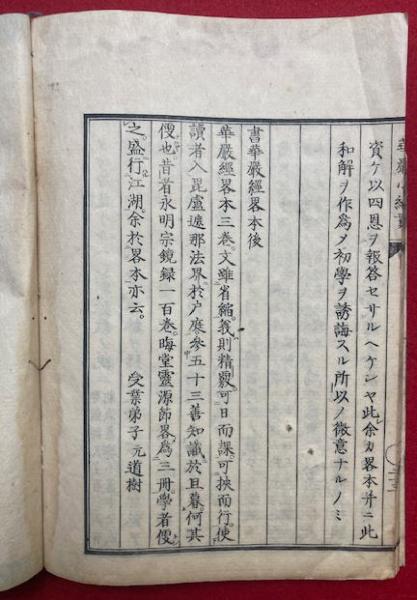 資ケ以四恩ヲ報答セサルヘケンヤ此余カ畧本并ニ此
和解ヲ作為シ初學ヲ誘誨スル所以ノ微意ナルノミ
書華嚴經畧本後
華嚴經畧本三巻文雖省縮義則精覈可日而課可挾而行使
讀者入毘盧遮那法界於户庭參五十三善知識於旦暮何其
傻也昔者永明宗鏡録一百巻晦堂靈源節畧為三冊學者便
之盛行江湖余於畧本亦云。
受業弟子元道樹